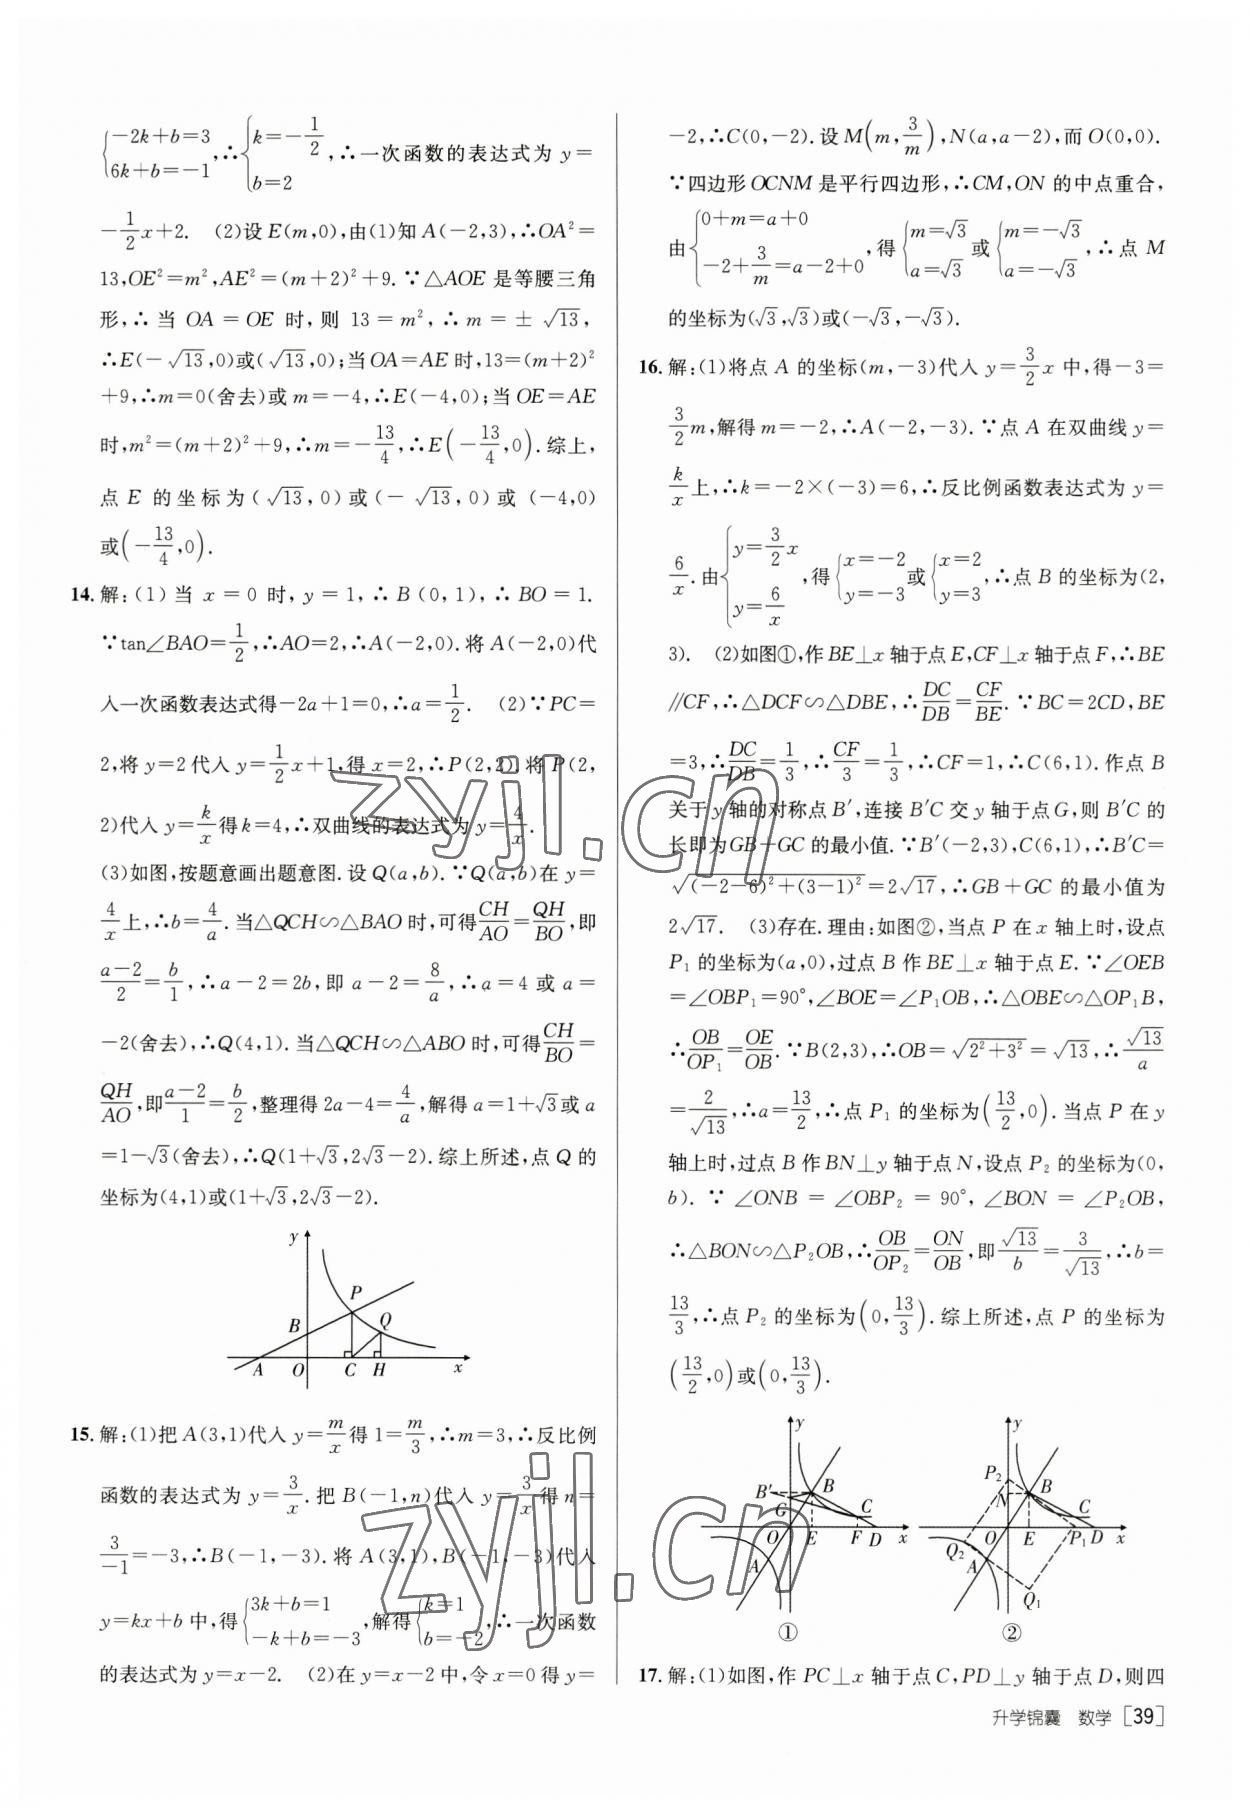 {-2k+b=3
6k+b=-1 ,∴{k=-1/2
b=2 ,∴一次函数的表达式为 y=
-1/2x+2. (2)设E(m,0),由(1)知A(-2,3),∴OA²=
13,OE²=m²,AE²=(m+2)²+9.∵△AOE是等腰三角
形,∴当 OA=OE 时,则 13=m²,∴m=±√13,
∴E(-√13,0)或(√13,0);当OA=AE时,13=(m+2)²
+9,∴m=0(舍去)或m=-4,∴E(-4,0);当OE=AE
时,m²=(m+2)²+9,∴m=-13/4,∴E(-13/4,0).综上,
点 E 的坐标为(√13,0)或(-√13,0)或(-4,0)
或(-13/4,0).
14.解:(1)当 x=0 时,y=1,∴B(0,1),∴BO=1.
∵tan∠BAO=1/2,∴AO=2,∴A(-2,0).将A(-2,0)代
入一次函数表达式得-2a+1=0,∴a=1/2. (2)∵PC=
2,将y=2代入y=1/2x+1,得x=2,∴P(2,2).将P(2,
2)代入y=k/x得k=4,∴双曲线的表达式为y=4/x.
(3)如图,按题意画出题意图.设Q(a,b).∵Q(a,b)在y=
4/x上,∴b=4/a.当△QCH∽△BAO时,可得CH/AO=QH/BO,即
a-2/2=b/1,∴a-2=2b,即a-2=8/a,∴a=4或a=
-2(舍去),∴Q(4,1).当△QCH∽△ABO时,可得CH/BO=
QH/AO,即a-2/1=b/2,整理得2a-4=4/a,解得a=1+√3或a
=1-√3(舍去),∴Q(1+√3,2√3-2).综上所述,点Q的
坐标为(4,1)或(1+√3,2√3-2).
y
P
B
Q
A O C H x
15.解:(1)把A(3,1)代入y=m/x得1=m/3,∴m=3,∴反比例
函数的表达式为y=3/x.把B(-1,n)代入y=3/x得n=
3/-1=-3,∴B(-1,-3).将A(3,1),B(-1,-3)代入
y=kx+b中,得{3k+b=1
-k+b=-3 ,解得{k=1
b=-2 ,∴一次函数
的表达式为y=x-2. (2)在y=x-2中,令x=0得y=
-2,∴C(0,-2).设M(m,3/m),N(a,a-2),而O(0,0).
∵四边形OCNM是平行四边形,∴CM,ON的中点重合,
由{0+m=a+0
-2+3/m=a-2+0 ,得{m=√3
a=√3 或{m=-√3
a=-√3 ,∴点 M
的坐标为(√3,√3)或(-√3,-√3).
16.解:(1)将点A的坐标(m,-3)代入y=3/2x中,得-3=
3/2m,解得m=-2,∴A(-2,-3).∵点A在双曲线y=
k/x上,∴k=-2×(-3)=6,∴反比例函数表达式为y=
6/x.由{y=3/2x
y=6/x ,得{x=-2
y=-3 或{x=2
y=3 ,∴点B的坐标为(2,
3). (2)如图①,作BE⊥x轴于点E,CF⊥x轴于点F,∴BE
∥CF,∴△DCF∽△DBE,∴DC/DB=CF/BE.∵BC=2CD,BE
=3,∴DC/DB=1/3,∴CF/3=1/3,∴CF=1,∴C(6,1).作点B
关于y轴的对称点B′,连接B′C交y轴于点G,则B′C的
长即为GB+GC的最小值.∵B′(-2,3),C(6,1),∴B′C=
√(-2-6)²+(3-1)²=2√17,∴GB+GC的最小值为
2√17. (3)存在.理由:如图②,当点P在x轴上时,设点
P₁的坐标为(a,0),过点B作BE⊥x轴于点E.∵∠OEB
=∠OBP₁=90°,∠BOE=∠P₁OB,∴△OBE∽△OP₁B,
∴OB/OP₁=OE/OB.∵B(2,3),∴OB=√2²+3²=√13,∴√13/a
=2/√13,∴a=13/2,∴点P₁的坐标为(13/2,0).当点P在y
轴上时,过点B作BN⊥y轴于点N,设点P₂的坐标为(0,
b).∵∠ONB=∠OBP₂=90°,∠BON=∠P₂OB,
∴△BON∽△P₂OB,∴OB/OP₂=ON/OB,即√13/b=3/√13,∴b=
13/3,∴点P₂的坐标为(0,13/3).综上所述,点P的坐标为
(13/2,0)或(0,13/3).
y
B′ B
G C
O E F D x
A
①
y
P₂
N B
C
O E P₁ D x
Q₂ A
Q₁
②
17.解:(1)如图,作PC⊥x轴于点C,PD⊥y轴于点D,则四
升学锦囊 数学 [39]
zyjl.cn
zyjl.cn